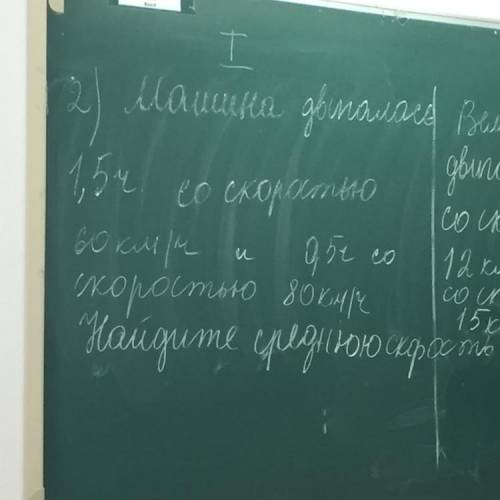 I
2) Машина двигалась
1,5ч. со скоростью
60км/ч и 0,5ч со
скоростью 80км/ч
Найдите среднюю скорость
Вел
двига
со ск
12 км
со ск
15к